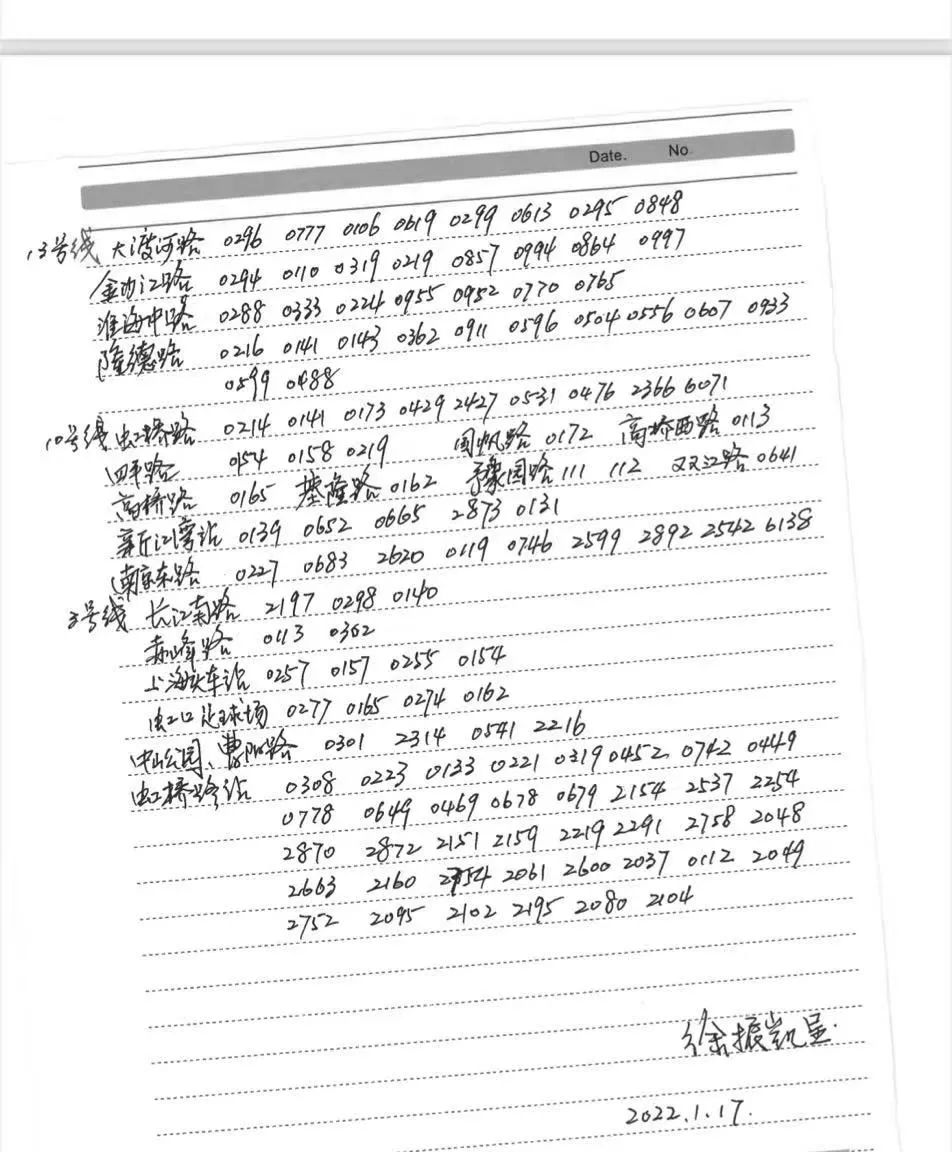 Date. No
13号线 大渡河路 0296 0777 0106 0619 0299 0613 0295 0848
金沙江路 0294 0110 0319 0219 0857 0994 0864 0997
淮海中路 0288 0333 0224 0955 0952 0770 0765
隆德路 0216 0141 0143 0362 0911 0596 0504 0556 0607 0933
0599 0488
10号线 虹桥路 0214 0141 0173 0429 2427 0531 0476 2366 6071
四平路 0154 0158 0219 国帆路 0172 高桥西路 0113
高桥路 0165 基隆路 0162 豫园路 111 112 双江路 0641
新江湾站 0139 0652 0665 2873 0131
南京东路 0227 0683 2620 0119 0746 2599 2892 2542 6138
3号线 长江南路 2197 0298 0140
赤峰路 0113 0302
上海火车站 0257 0157 0255 0154
虹口足球场 0277 0165 0274 0162
中山公园、曹阳路 0301 2314 0541 2216
虹桥路站 0308 0223 0133 0221 0319 0452 0742 0449
0778 0649 0469 0678 0679 2154 2537 2254
2870 2872 2151 2159 2219 2291 2758 2048
2663 2160 2754 2061 2600 2037 0112 2049
2752 2095 2102 2195 2080 2104
徐振凯呈.
2022.1.17.